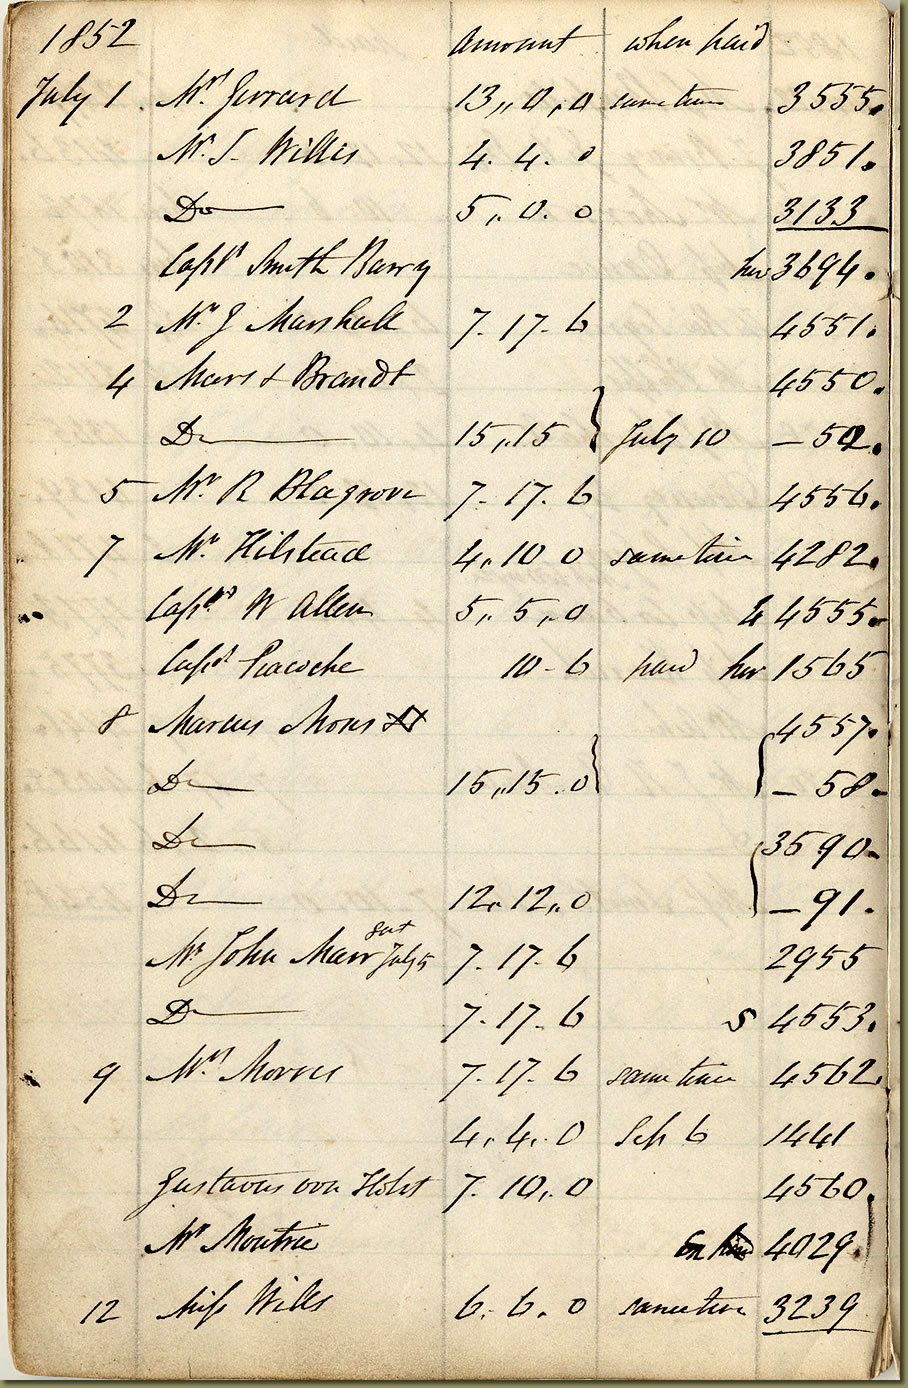 1852 amount when paid
July 1 Mrs Jerrard 13,,0,,0 sametime 3555.
Mr. J. Willis 4. 4. 0 3851.
Do 5,, 0. 0 3133
Capt Smith Barry her 3694.
2 Mr. J Marshall 7. 17. 6 4551.
4 Mavs & Brandt 4550.
Do 15,,15 } July 10 — 52.
5 Mr. R Blagrove 7. 17. 6 4556.
7 Mr. Hilstead 4,, 10 0 sametime 4282.
Capt W Allen 5,, 5,, 0 4555.
Capt Peacocke 10 - 6 paid her 1565
8 Marcus Moses 4557.
Do 15,,15. 0 } { — 58.
Do 3590.
Do 12,, 12,, 0 { — 91.
Mr John Marr July 5 7. 17. 6 2955
Do 7. 17. 6 S 4553.
9 Mrs Morris 7. 17. 6 sametime 4562.
4,, 4,. 0 Sep 6 1441
Gustavus von Holst 7. 10,, 0 4560.
Mr Moutrie 4029.
12 Miss Wills 6. 6. 0 sametime 3239